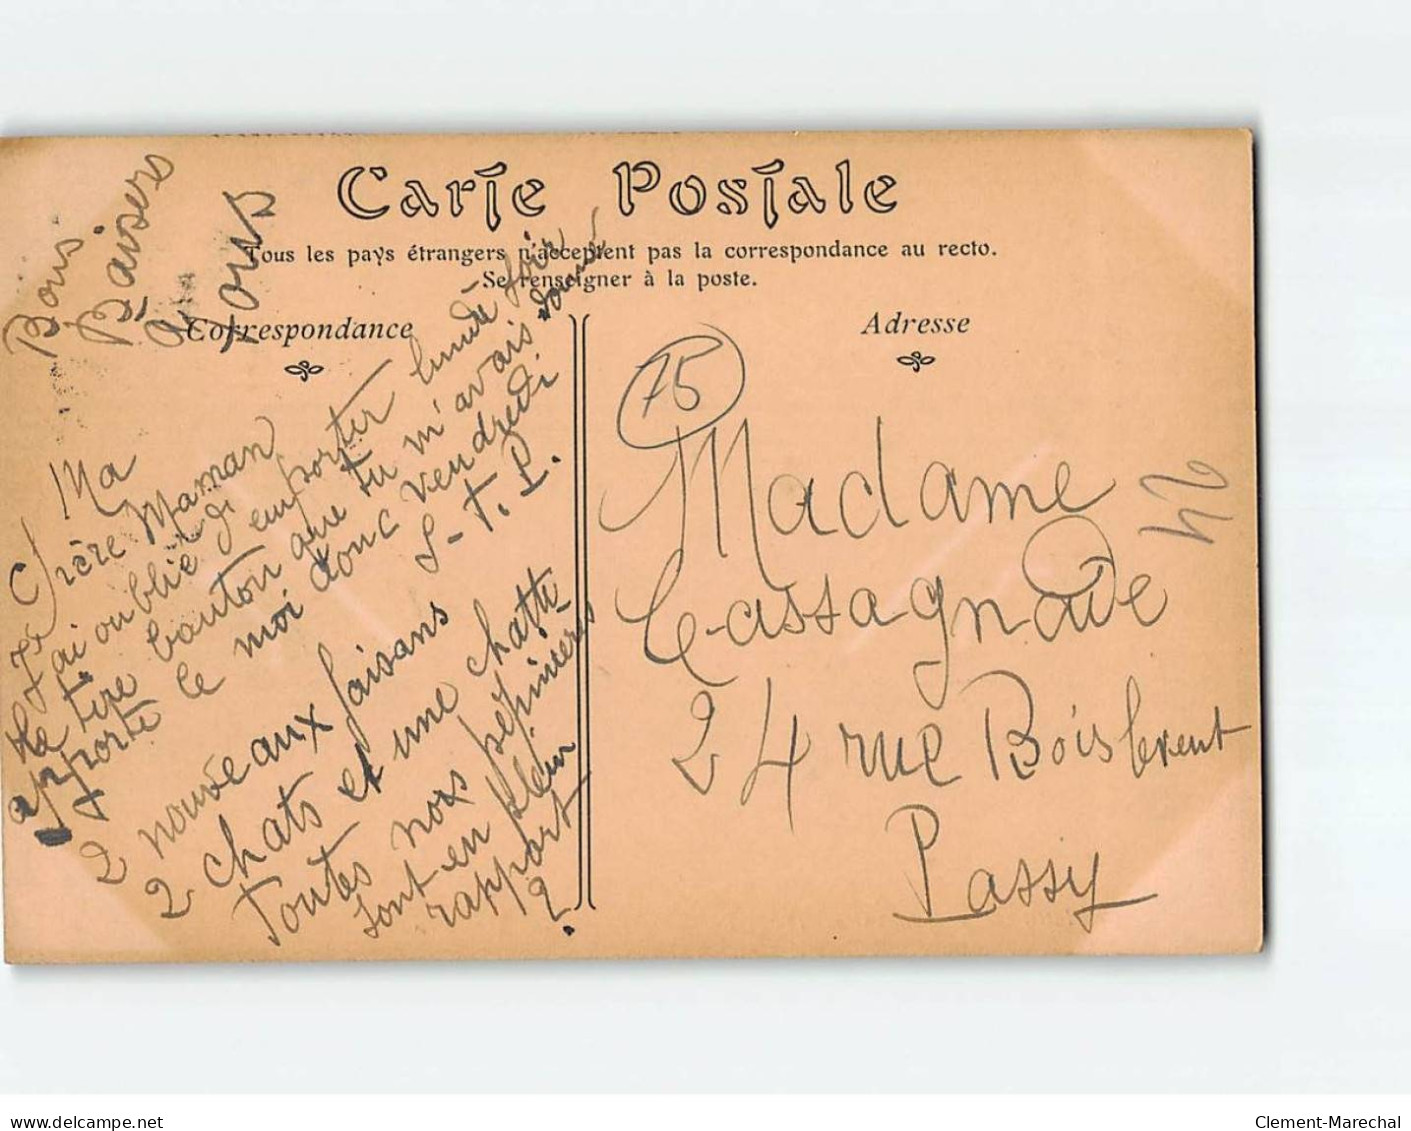 Carte Postale
Tous les pays étrangers n'acceptent pas la correspondance au recto.
Se renseigner à la poste.
Correspondance
Adresse
Bons
Baisers
à
tous
Ma
Chère Maman
J'ai oublié d'emporter lundi soir
le tire bouton que tu m'avais donné
apporte le moi donc vendredi
S.T.P.
2 nouveaux faisans
2 chats et une chatte
Toutes nos pépinières
sont en plein
rapport
2
75
Madame
Cassagnade
24 rue Boislevent
Passy
delcampe.net
Clement-Marechal